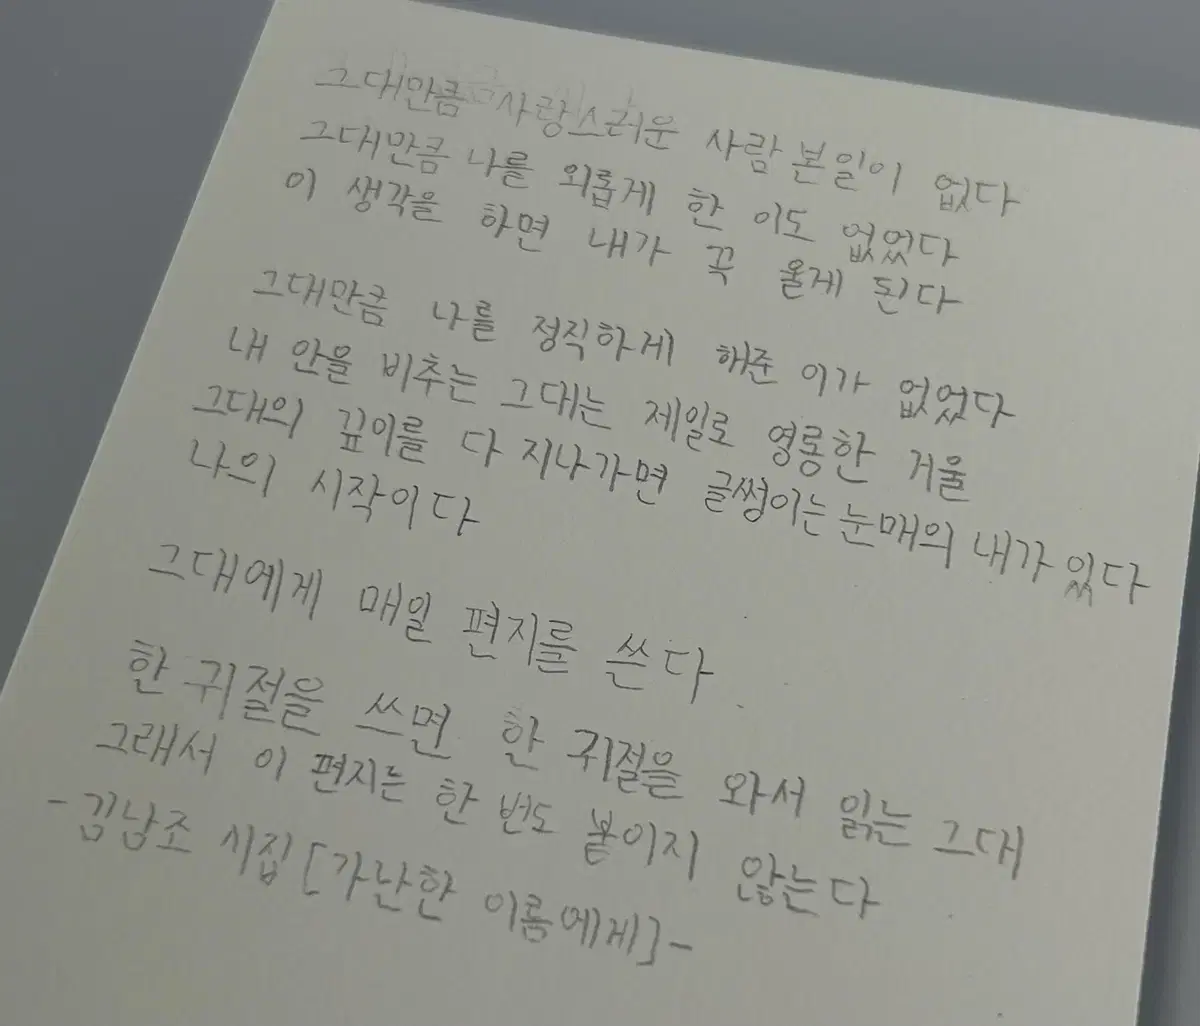 그대만큼 사랑스러운 사람 본일이 없다
그대만큼 나를 외롭게 한 이도 없었다
이 생각을 하면 내가 꼭 울게 된다
그대만큼 나를 정직하게 해준 이가 없었다
내 안을 비추는 그대는 제일로 영롱한 거울
그대의 깊이를 다 지나가면 글썽이는 눈매의 내가 있다
나의 시작이다
그대에게 매일 편지를 쓴다
한 귀절을 쓰면 한 귀절을 와서 읽는 그대
그래서 이 편지는 한 번도 붙이지 않는다
-김남조 시집[가난한 이름에게]-